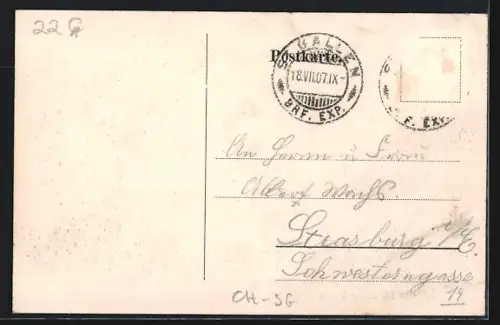 22 G
ST. GALLEN
Postkarte.
18.VII.07.IX-
BRF. EXP.
F. EXP.
An Herrn u Frau
Albert
Strasburg i/E.
Schwesterngasse
14
CH-SG